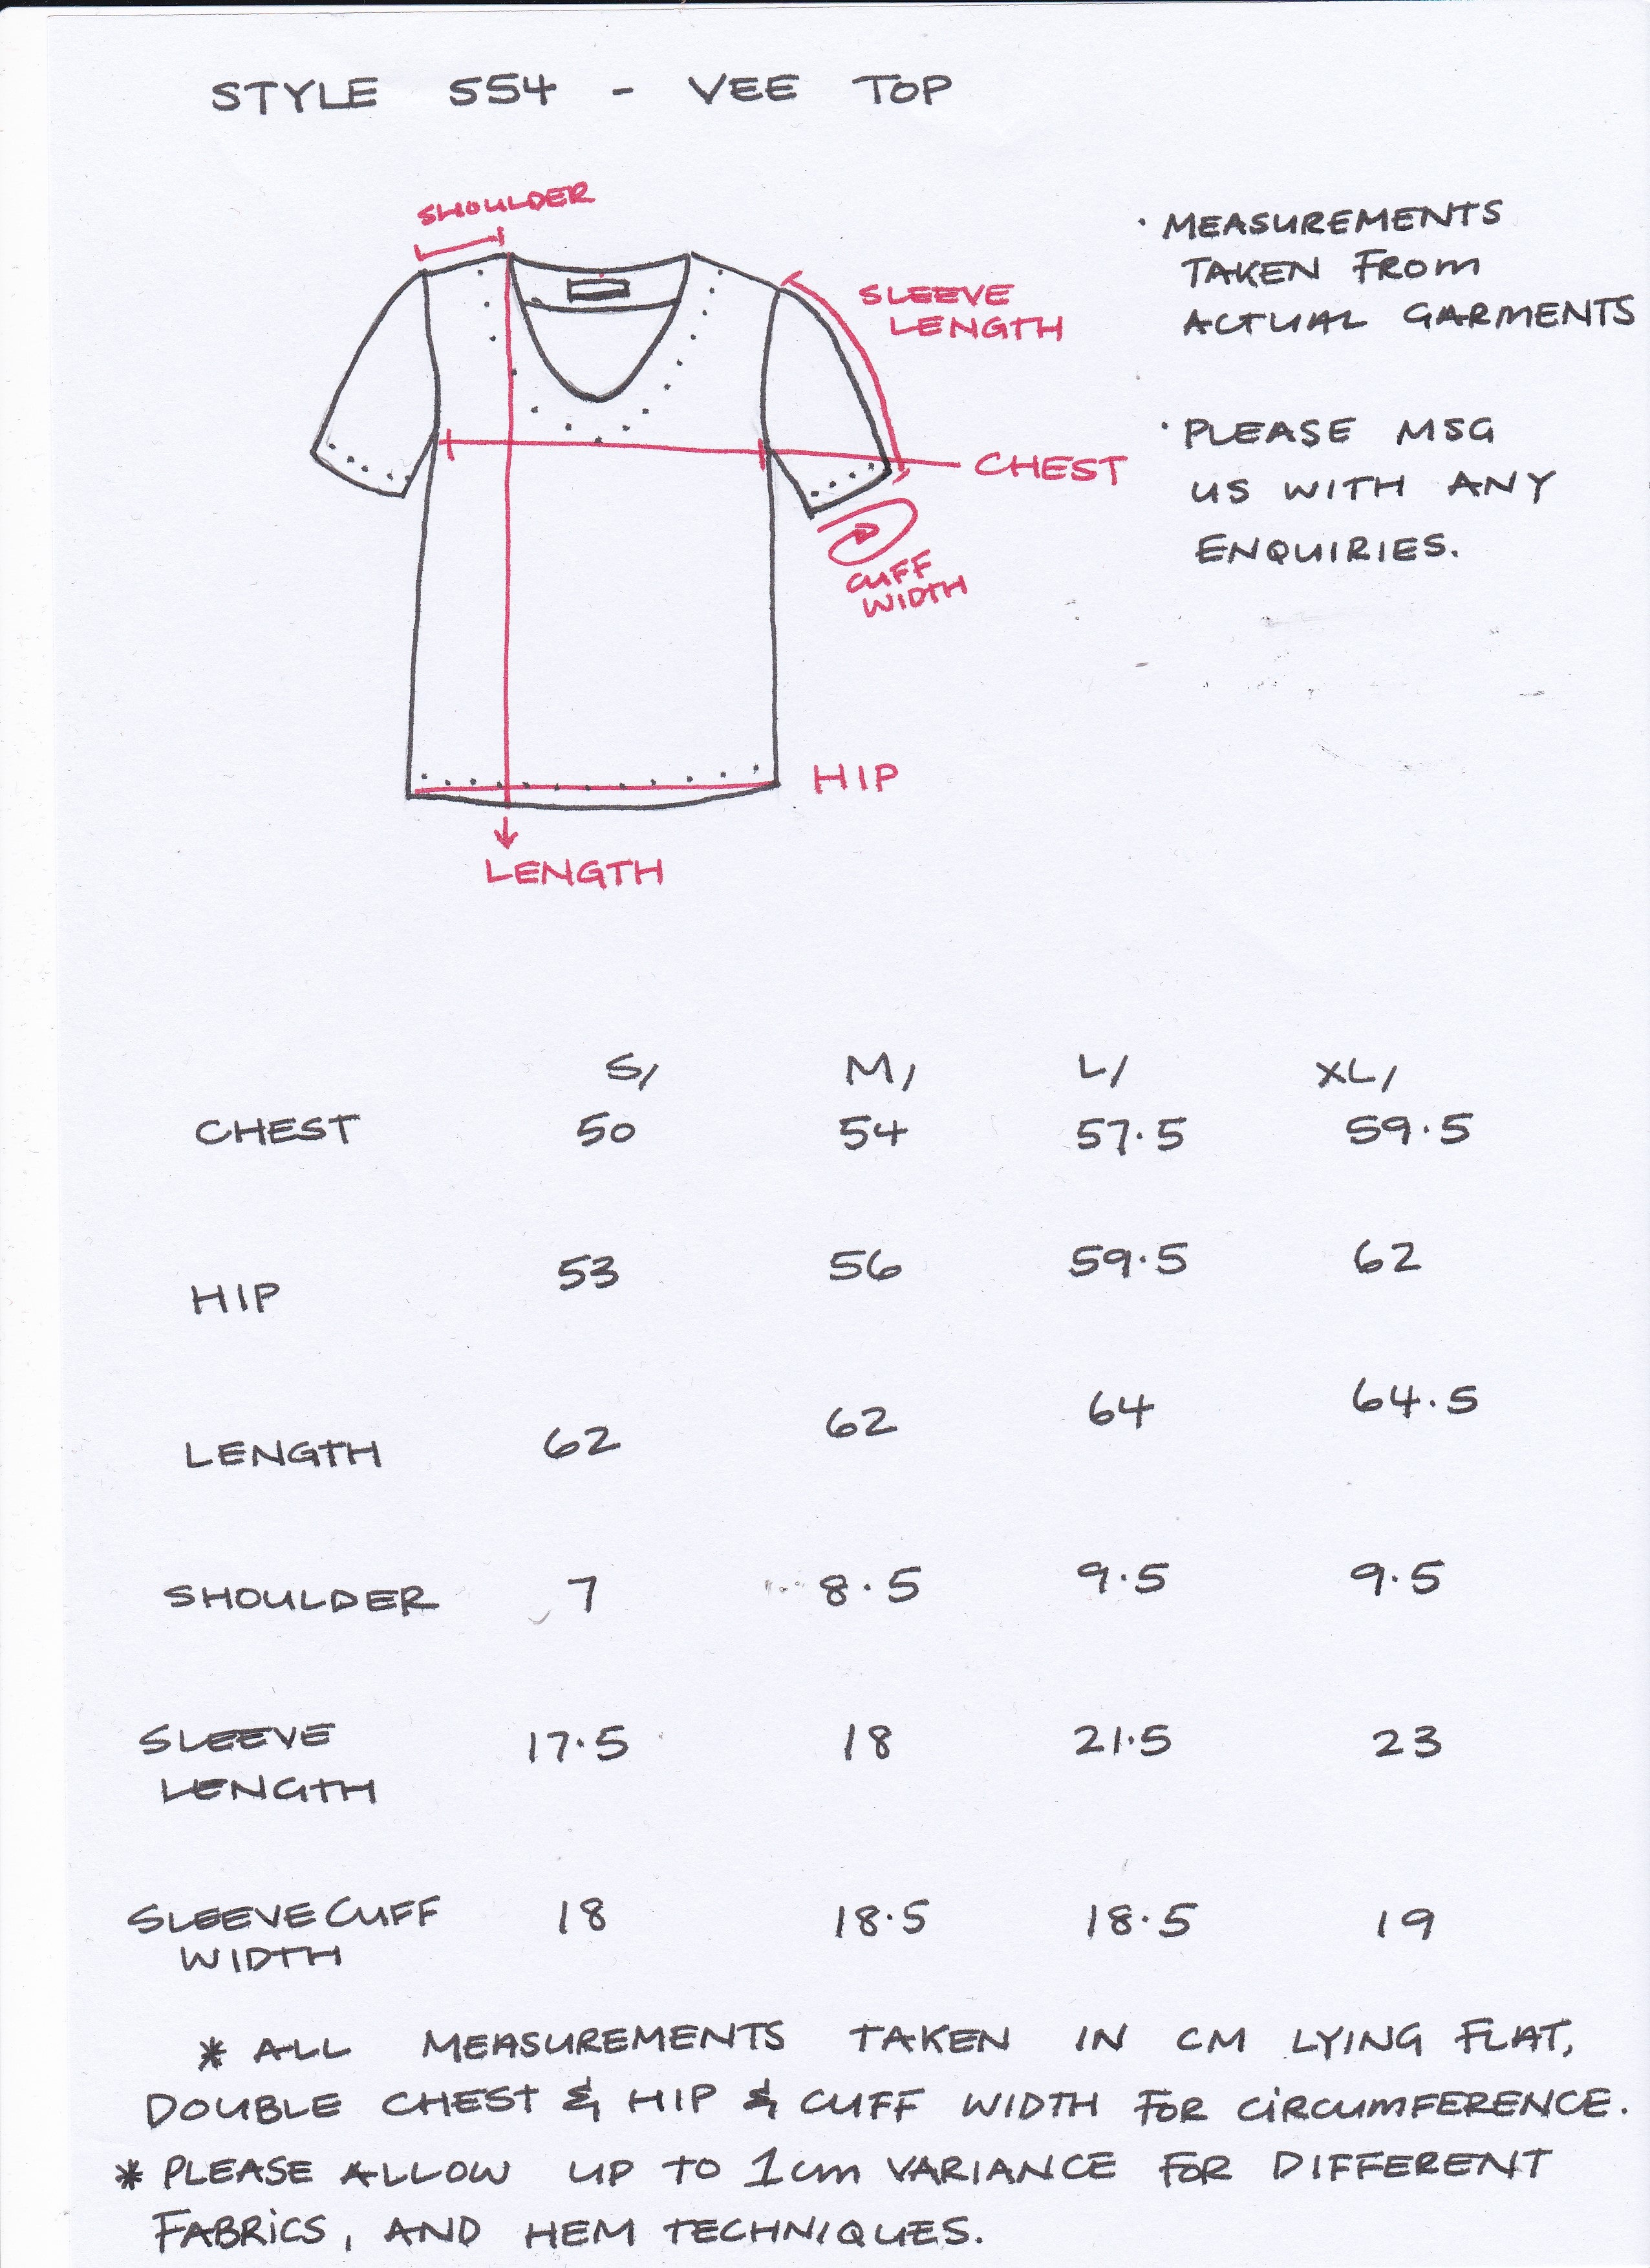 STYLE 554 - VEE TOP
SHOULDER
SLEEVE
LENGTH
CHEST
CUFF
WIDTH
HIP
LENGTH
· MEASUREMENTS
TAKEN FROM
ACTUAL GARMENTS
· PLEASE MSG
US WITH ANY
ENQUIRIES.
S/ M/ L/ XL/
CHEST 50 54 57.5 59.5
HIP 53 56 59.5 62
LENGTH 62 62 64 64.5
SHOULDER 7 8.5 9.5 9.5
SLEEVE 17.5 18 21.5 23
LENGTH
SLEEVE CUFF 18 18.5 18.5 19
WIDTH
* ALL MEASUREMENTS TAKEN IN CM LYING FLAT,
DOUBLE CHEST & HIP & CUFF WIDTH FOR CIRCUMFERENCE.
* PLEASE ALLOW UP TO 1cm VARIANCE FOR DIFFERENT
FABRICS, AND HEM TECHNIQUES.